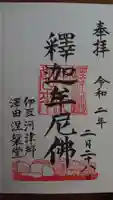 奉拝
令和二年
二月二十八日
釋迦牟尼佛
伊豆河津町
澤田涅槃堂